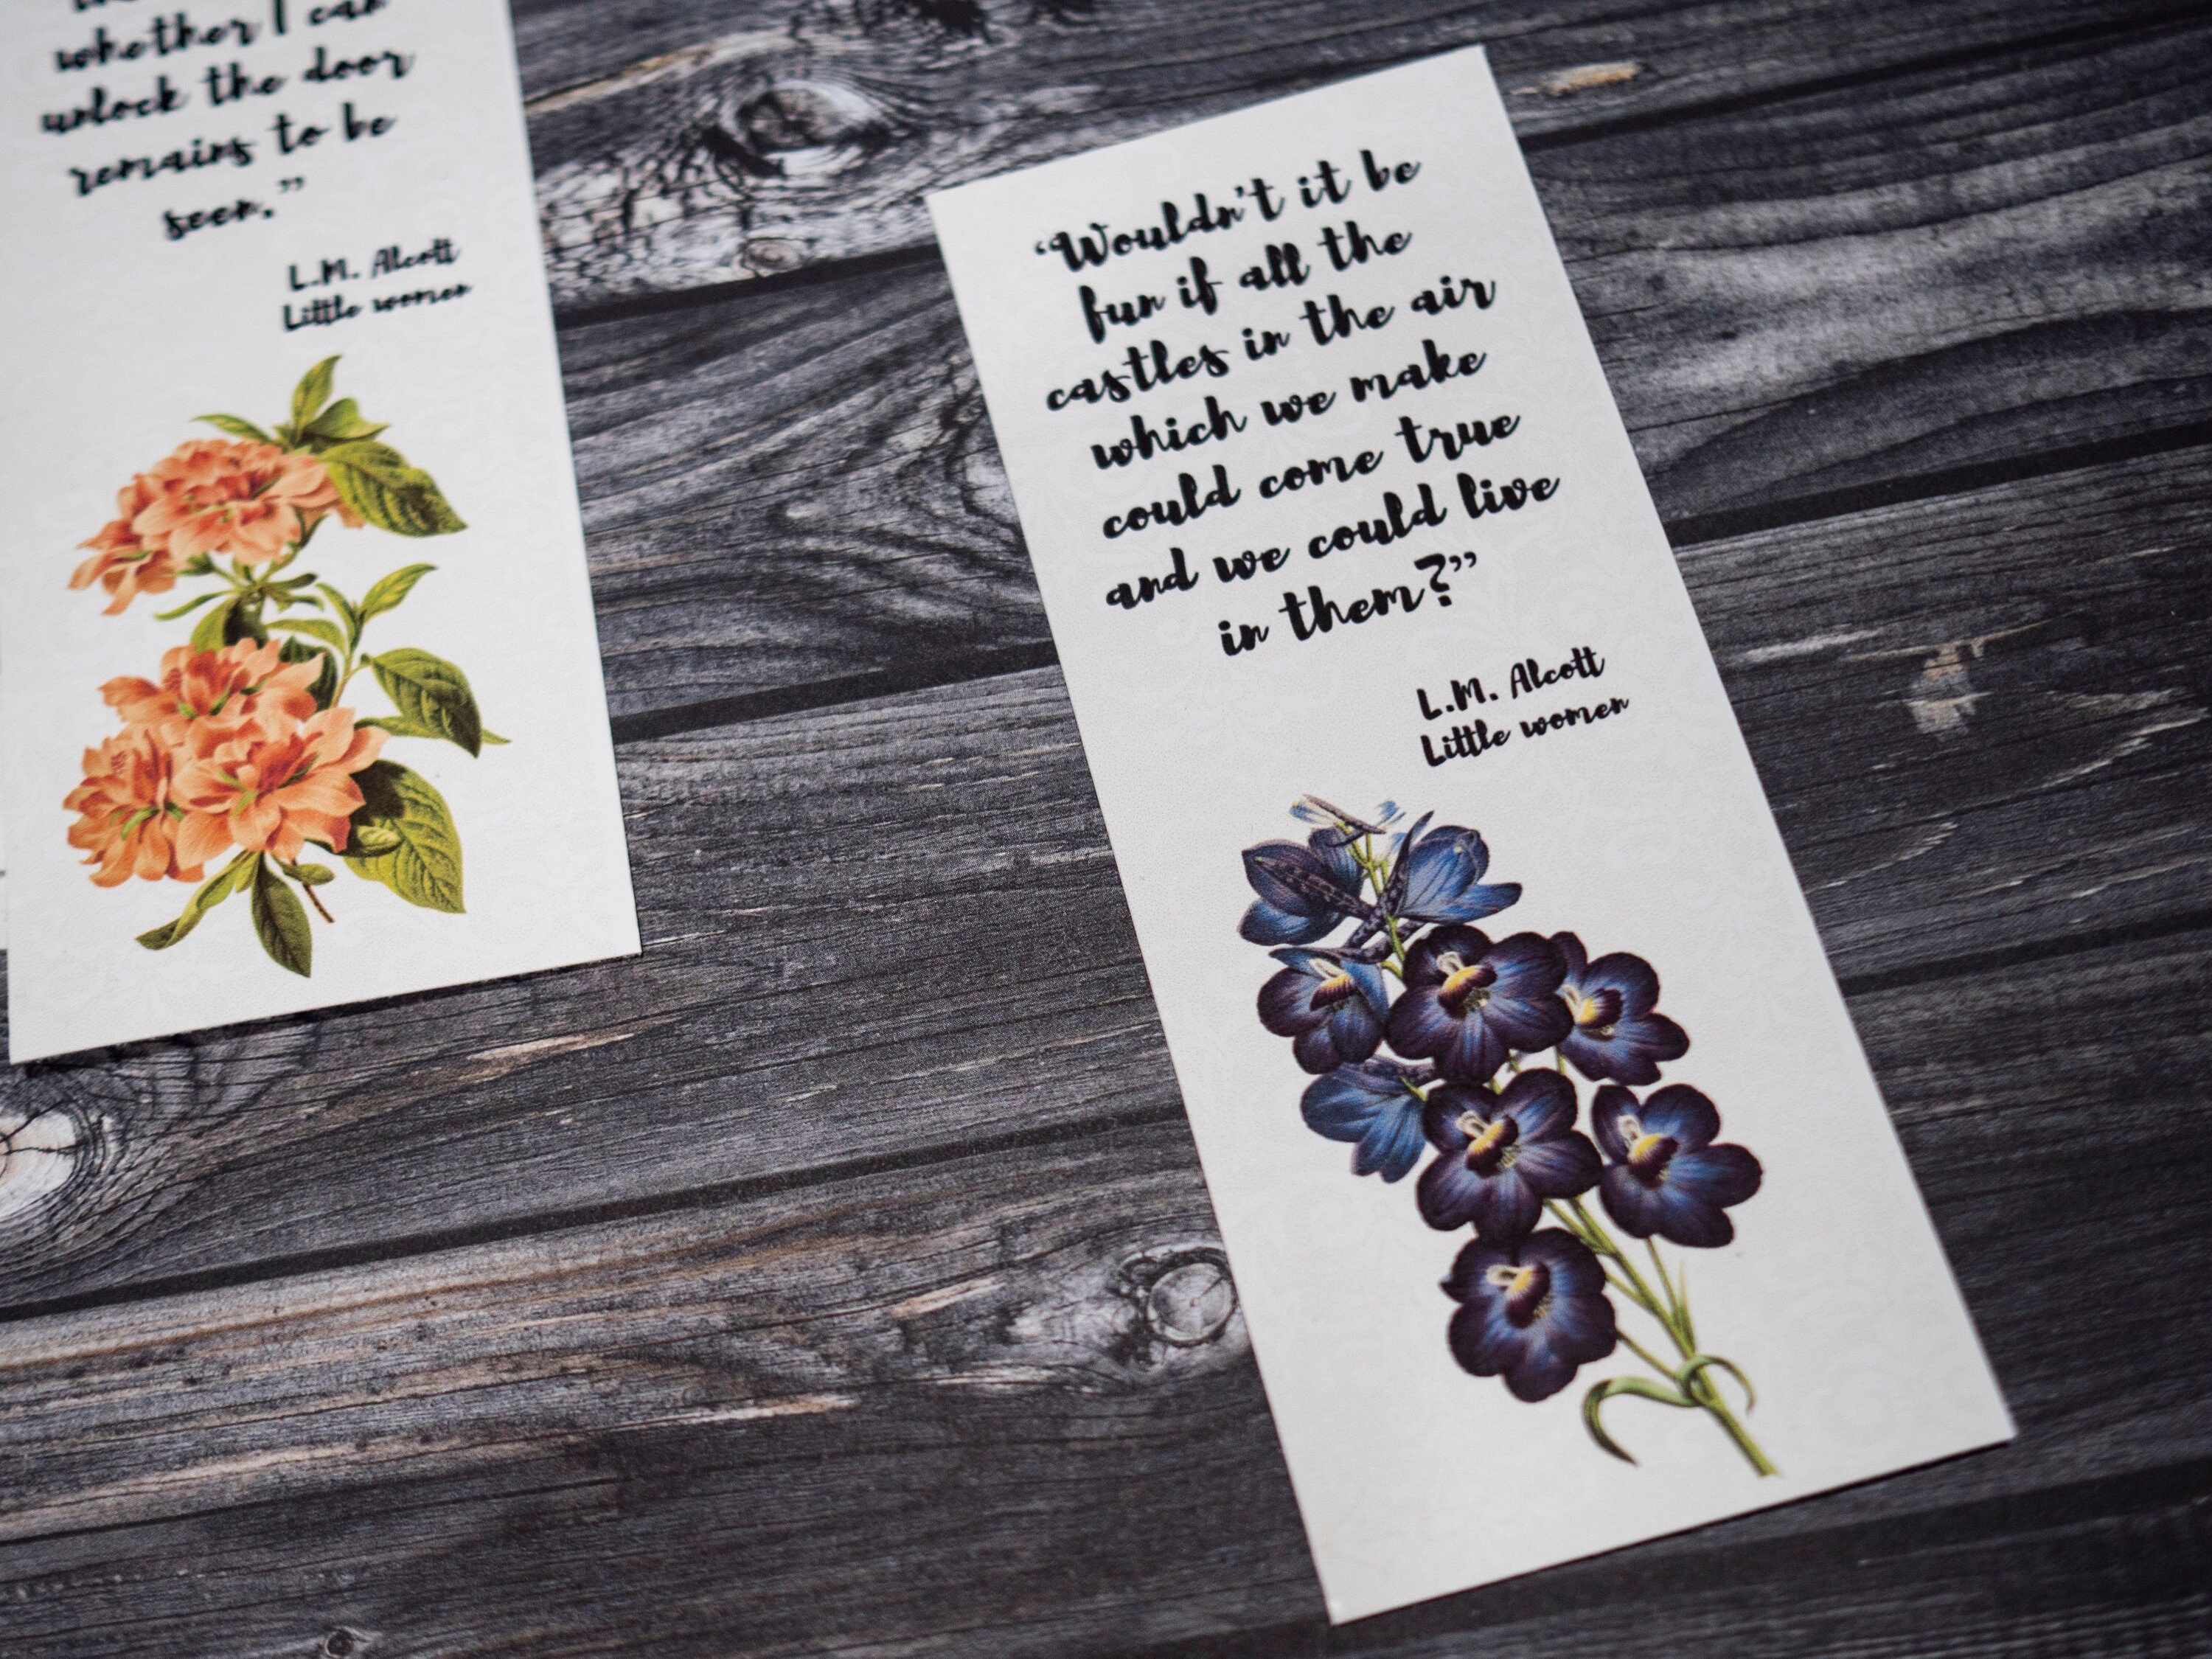 whether I can
unlock the door
remains to be
seen.”
L.M. Alcott
Little women
“Wouldn’t it be
fun if all the
castles in the air
which we make
could come true
and we could live
in them?”
L.M. Alcott
Little women